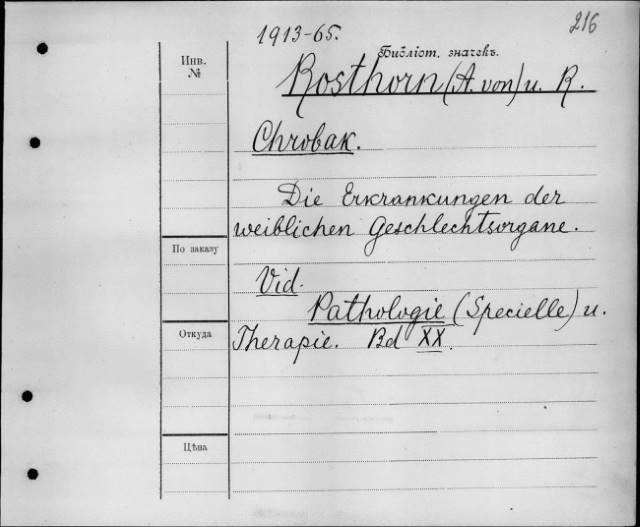 216
1913-65.
Инв.
№
Библіот. значекъ.
Rosthorn (A. von) u. R.
Chrobak.
Die Erkrankungen der
weiblichen Geschlechtsorgane.
По заказу
Vid.
Pathologie (Specielle) u.
Откуда
Therapie. Bd XX.
Цѣна